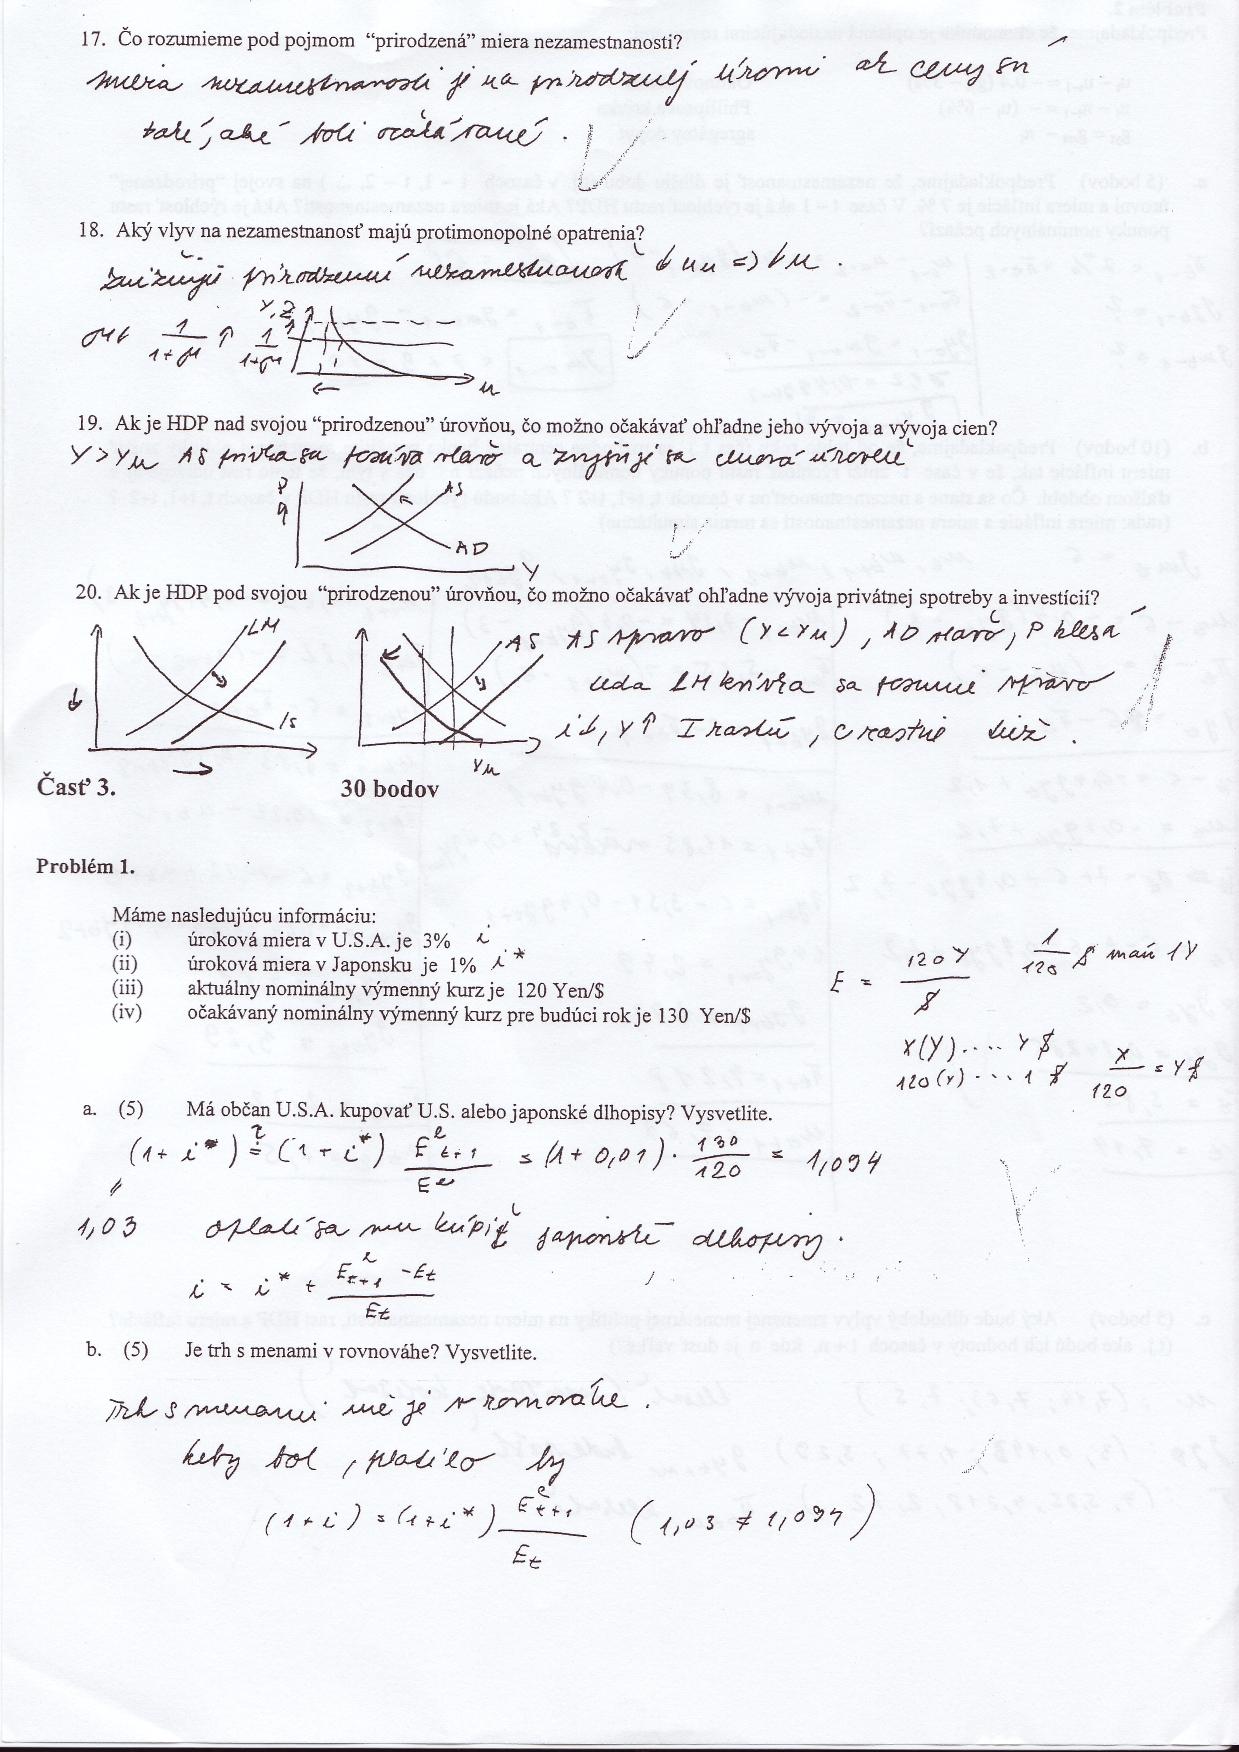 17. Čo rozumieme pod pojmom “prirodzená” miera nezamestnanosti?
miera nezamestnanosti je na prirodzenej úrovni ak ceny sú
také, aké boli očakávané.
18. Aký vlyv na nezamestnanosť majú protimonopolné opatrenia?
znižujú prirodzenú nezamestnanosť ↓ un => ↓ u.
Y, Z
μ↓ 1/(1+μ) ↑ 1/(1+μ)
u
19. Ak je HDP nad svojou “prirodzenou” úrovňou, čo možno očakávať ohľadne jeho vývoja a vývoja cien?
Y > Yn AS krivka sa posúva vľavo a zvyšuje sa cenová úroveň
P AS
AD
Y
20. Ak je HDP pod svojou “prirodzenou” úrovňou, čo možno očakávať ohľadne vývoja privátnej spotreby a investícií?
LM AS AS vpravo (Y < Yn), AD vľavo, P klesá
teda LM krivka sa posunie vpravo
IS i↓, Y↑ I rastú, C rastie tiež.
Yn
Časť 3. 30 bodov
Problém 1.
Máme nasledujúcu informáciu:
(i) úroková miera v U.S.A. je 3% i
(ii) úroková miera v Japonsku je 1% i*
(iii) aktuálny nominálny výmenný kurz je 120 Yen/$
(iv) očakávaný nominálny výmenný kurz pre budúci rok je 130 Yen/$
E = 120Y/$ 1/120 $ 1Y
X(Y) .... Y $
120(Y) ... 1 $ X/120 = Y$
a. (5) Má občan U.S.A. kupovať U.S. alebo japonské dlhopisy? Vysvetlite.
(1 + i*) ≟ (1 + i*) E^e t+1 / E = (1 + 0,01) · 130/120 = 1,094
1,03 oplatí sa mu kúpiť japonské dlhopisy.
i = i* + (E^e t+1 - Et)/Et
b. (5) Je trh s menami v rovnováhe? Vysvetlite.
Trh s menami nie je v rovnováhe.
keby bol, platilo by
(1 + i) = (1 + i*) E^e t+1 / Et (1,03 ≠ 1,094)